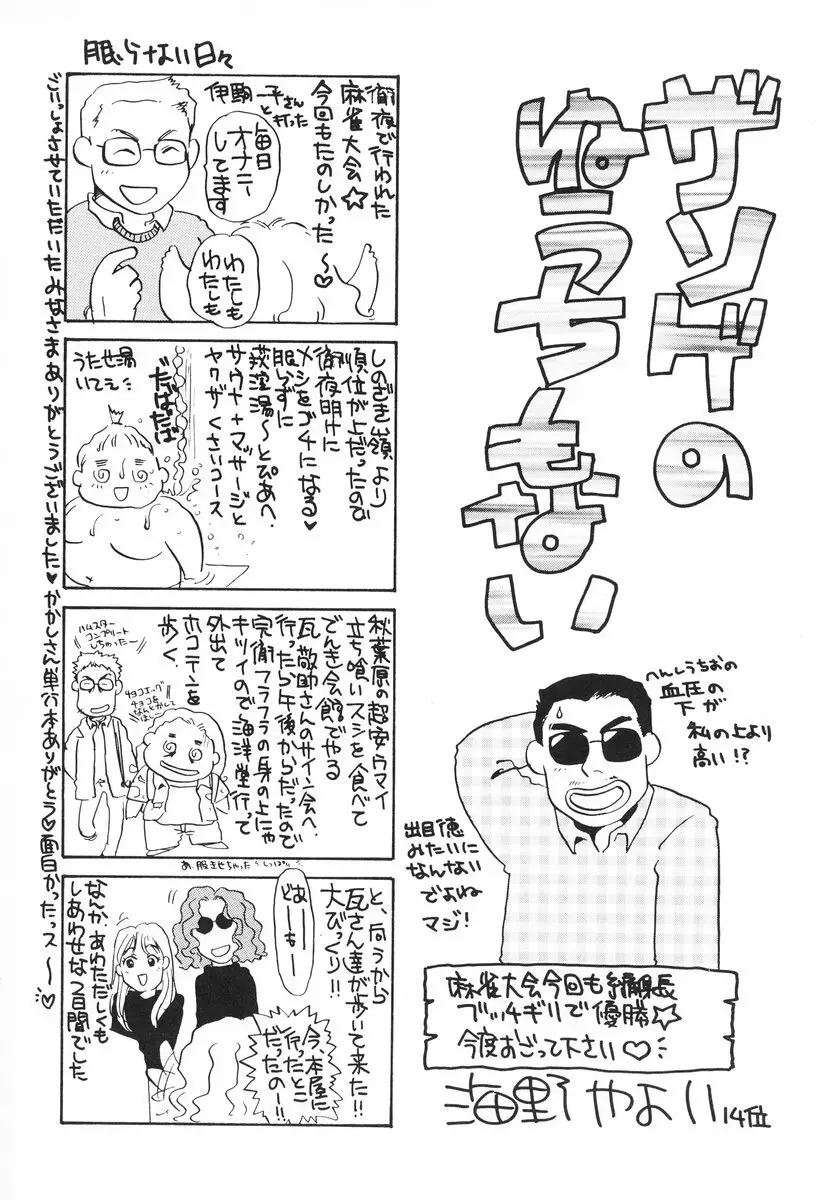 ザンゲの
ゆうちもない
へんしうちおの
血圧の
下が
私の上より
高い!?
出目徳
みたいに
なんない
でよね
マジ!
麻雀大会今回も編集長
ブッチギリで優勝☆
今度おごって下さい♡
海野やよい 14位
眠らない日々
徹夜で行われた
麻雀大会☆
今回もたのしかった〜♡
伊駒一平さん
と打った
毎日
オナニー
してます
わたしも
わたしも
しのざき嶺より
順位が上だったので
徹夜明けに
メシをゴチになる♥
眠らずに
荻窪湯〜とぴあへ
サウナ+マッサージと
ヤクザくさいコース
だばだば
うたせ湯
いてえ
秋葉原の超安ウマイ
立ち喰いスシを食べて
でんき会館でやる
瓦敬助さんのサイン会へ
行ったら午後からだったので
完徹フラフラの身の上にゃ
キツイので海洋堂行って
外出て
ホコテンを
歩く
ハムスター
コンプリート
しちゃったー
チョコエッグ
チョコを
なんとかして
ほしー
あ、服きせちゃった しっぱい
と、向うから
瓦さん達が歩いて来た!!
大びっくり!!
どおーもー
今、本屋に
行ったとこ
だったのー!!
なんか、あわただしくも
しあわせな2日間でした
ごいっしょさせていただいたみなさまありがとうございました♥かかしさん単行本ありがとう♡面白かったっス〜♡